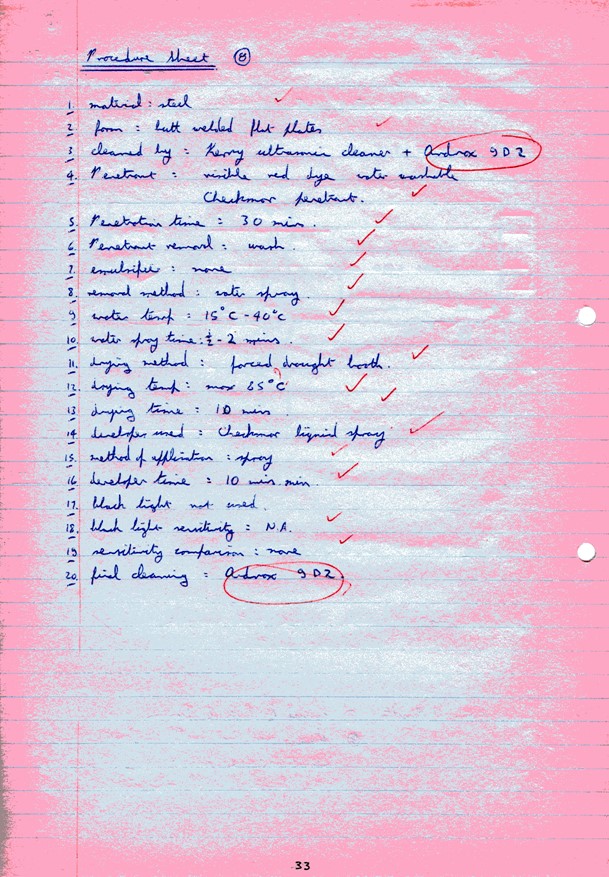 Procedure Sheet 8
1. material : steel
2 form : butt welded flat plates
3 cleaned by : Kerry ultrasonic cleaner + Ardrox 9D2
4. Penetrant : visible red dye water washable
Checkmor penetrant.
5. Penetration time : 30 mins.
6. Penetrant removal : wash.
7. emulsifier : none
8. removal method : water spray.
9 water temp : 15°C - 40°C
10. water spray time : ½ - 2 mins.
11. drying method : forced drought booth.
12. drying temp : max 85°C
13 drying time : 10 mins.
14 developer used : Checkmor liquid spray
15. method of application : spray
16. developer time : 10 mins min.
17. black light not used.
18. black light sensitivity : N.A.
19 sensitivity comparison : none
20. final cleaning : Ardrox 9D2.
33